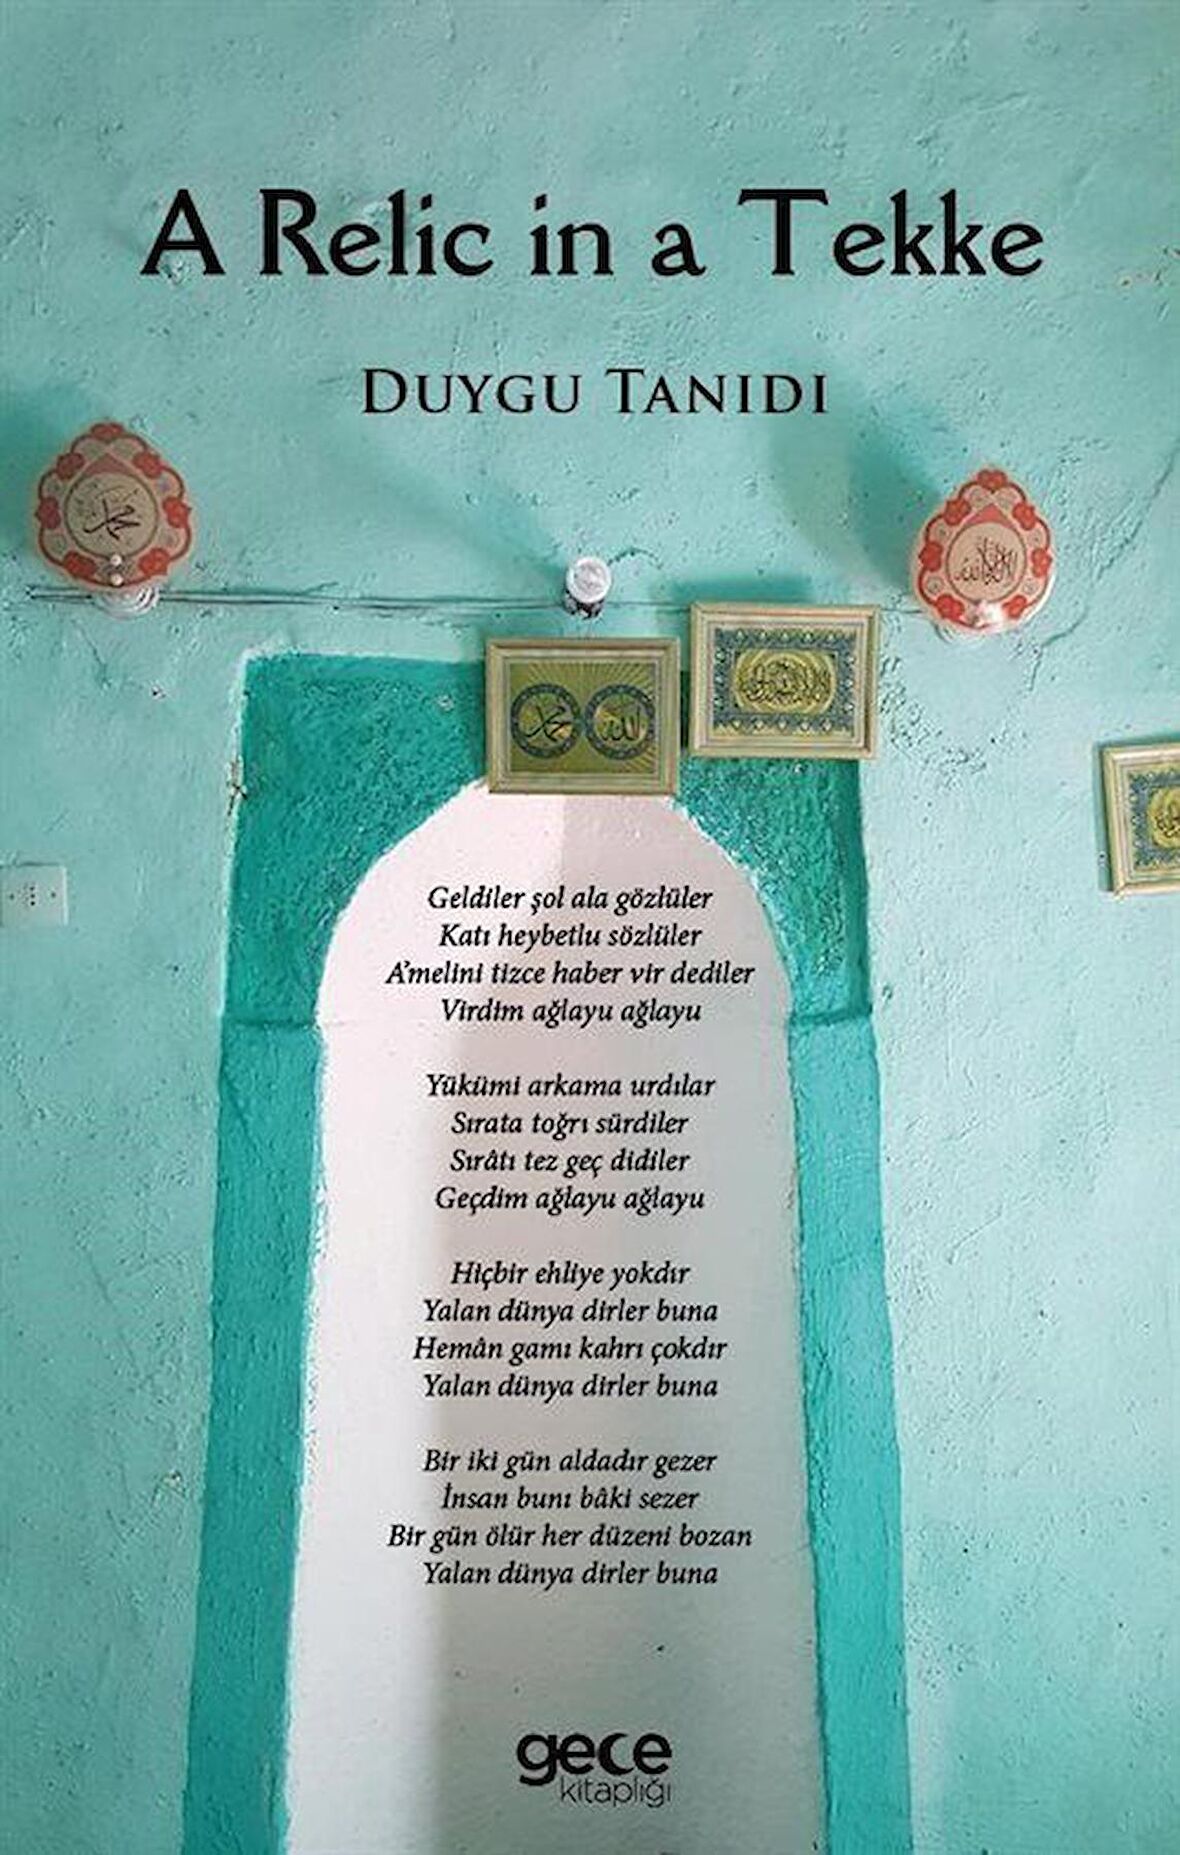 A Relic in a Tekke
DUYGU TANIDI
محمد
محمد
الله
Geldiler şol ala gözlüler
Katı heybetlu sözlüler
A'melini tizce haber vir dediler
Virdim ağlayu ağlayu
Yükümi arkama urdılar
Sırata toğrı sürdiler
Sırâtı tez geç didiler
Geçdim ağlayu ağlayu
Hiçbir ehliye yokdır
Yalan dünya dirler buna
Hemân gamı kahrı çokdır
Yalan dünya dirler buna
Bir iki gün aldadır gezer
İnsan bunı bâki sezer
Bir gün ölür her düzeni bozan
Yalan dünya dirler buna
gece
kitaplığı